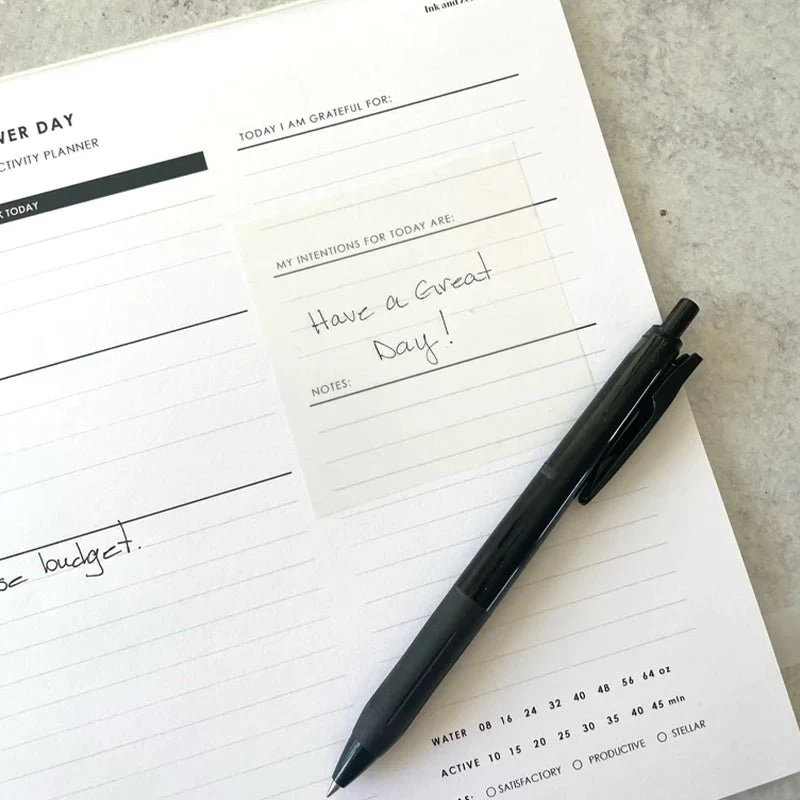 Ink and
DAY
PLANNER
TODAY
budget.
TODAY I AM GRATEFUL FOR:
MY INTENTIONS FOR TODAY ARE:
Have a Great
Day!
NOTES:
WATER 08 16 24 32 40 48 56 64 oz
ACTIVE 10 15 20 25 30 35 40 45 min
SATISFACTORY PRODUCTIVE STELLAR